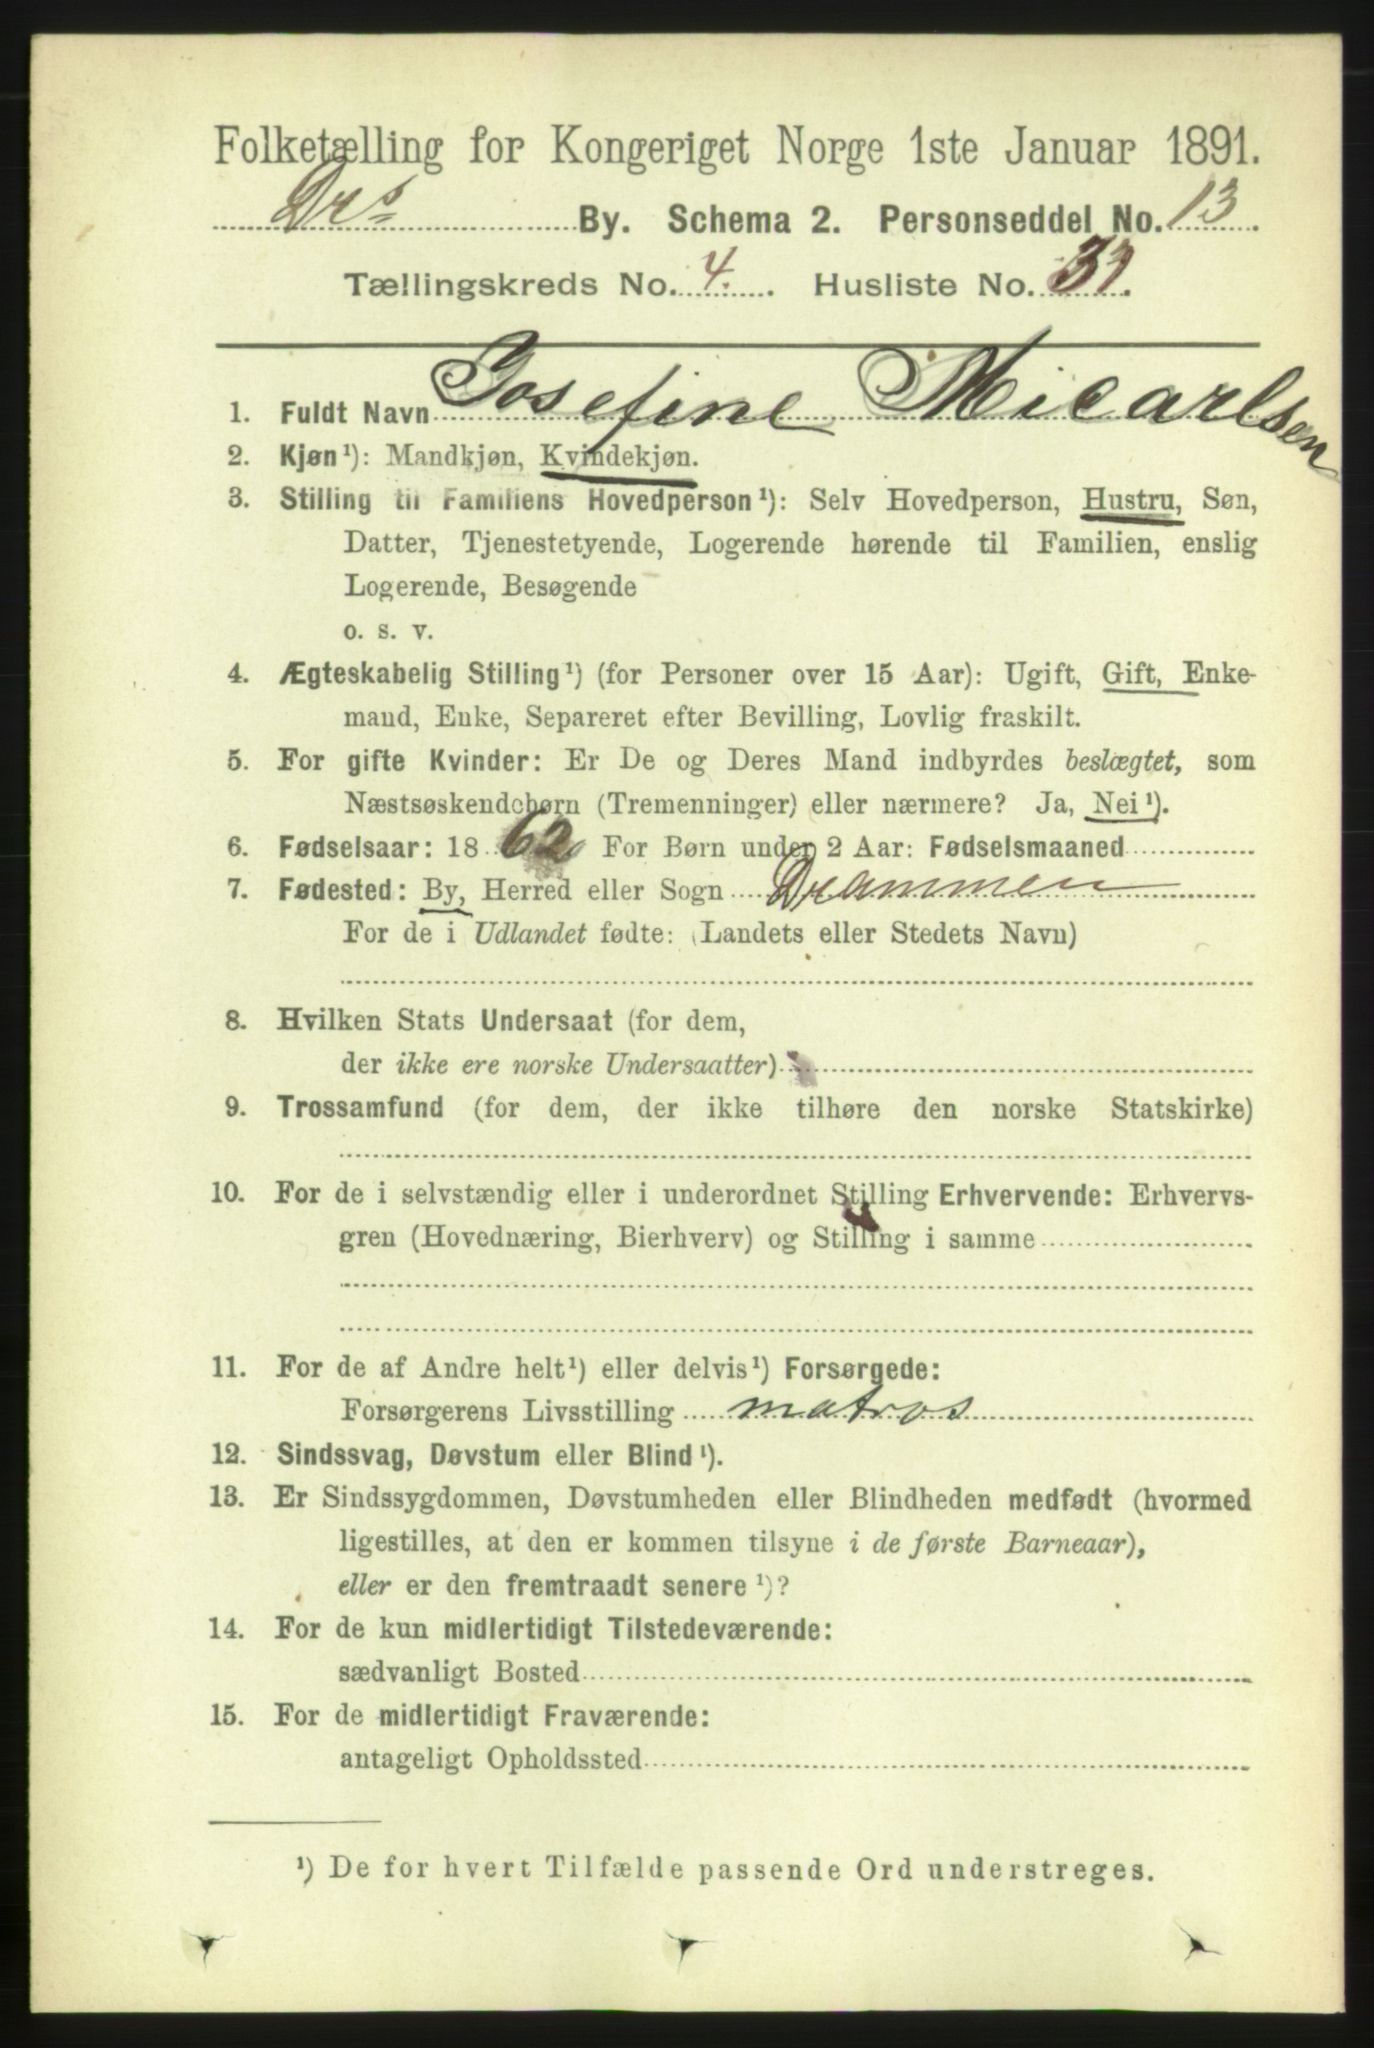 Folketælling for Kongeriget Norge 1ste Januar 1891.
Drs By. Schema 2. Personseddel No. 13
Tællingskreds No. 4. Husliste No. 37.
1. Fuldt Navn Josefine Micarlsen
2. Kjøn¹): Mandkjøn, Kvindekjøn.
3. Stilling til Familiens Hovedperson¹): Selv Hovedperson, Hustru, Søn,
Datter, Tjenestetyende, Logerende hørende til Familien, enslig
Logerende, Besøgende
o. s. v.
4. Ægteskabelig Stilling¹) (for Personer over 15 Aar): Ugift, Gift, Enke-
mand, Enke, Separeret efter Bevilling, Lovlig fraskilt.
5. For gifte Kvinder: Er De og Deres Mand indbyrdes beslægtet, som
Næstsøskendebørn (Tremenninger) eller nærmere? Ja, Nei¹).
6. Fødselsaar: 1862 For Børn under 2 Aar: Fødselsmaaned
7. Fødested: By, Herred eller Sogn Drammen
For de i Udlandet fødte: (Landets eller Stedets Navn)
8. Hvilken Stats Undersaat (for dem,
der ikke ere norske Undersaatter)
9. Trossamfund (for dem, der ikke tilhøre den norske Statskirke)
10. For de i selvstændig eller i underordnet Stilling Erhvervende: Erhvervs-
gren (Hovednæring, Bierhverv) og Stilling i samme
11. For de af Andre helt¹) eller delvis¹) Forsørgede:
Forsørgerens Livsstilling matros
12. Sindssvag, Døvstum eller Blind¹).
13. Er Sindssygdommen, Døvstumheden eller Blindheden medfødt (hvormed
ligestilles, at den er kommen tilsyne i de første Barneaar),
eller er den fremtraadt senere¹)?
14. For de kun midlertidigt Tilstedeværende:
sædvanligt Bosted
15. For de midlertidigt Fraværende:
antageligt Opholdssted
¹) De for hvert Tilfælde passende Ord understreges.